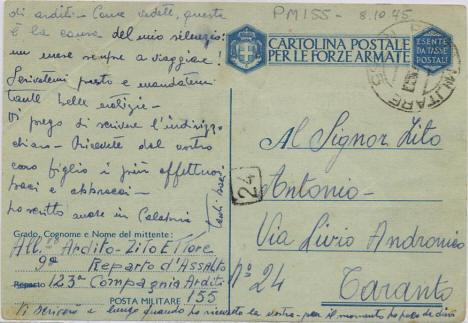 PM155 - 8.10.45
di ardito - Come vedete, questa
è la causa del mio silenzio:
un mese sempre a viaggiare!
Scrivetemi presto e mandatemi
tante belle notizie -
Vi prego di scrivere l'indirizzo
chiaro - Ricevete dal vostro
caro figlio i più affettuosi
baci e abbracci -
ho scritto anche in Calabria
Tanti baci
CARTOLINA POSTALE
PER LE FORZE ARMATE
ESENTE
DA TASSE
POSTALI
MILITARE
24
Al Signor Zito
Antonio -
Via Livio Andronico
N° 24
Taranto
Grado, Cognome e Nome del mittente:
Ardito - Zito Ettore
9° Reparto d'Assalto
Reparto 123ª Compagnia Arditi
POSTA MILITARE 155
Vi scriverò a lungo quando ho ricevuto la vostra - per il momento ho poco da dirvi